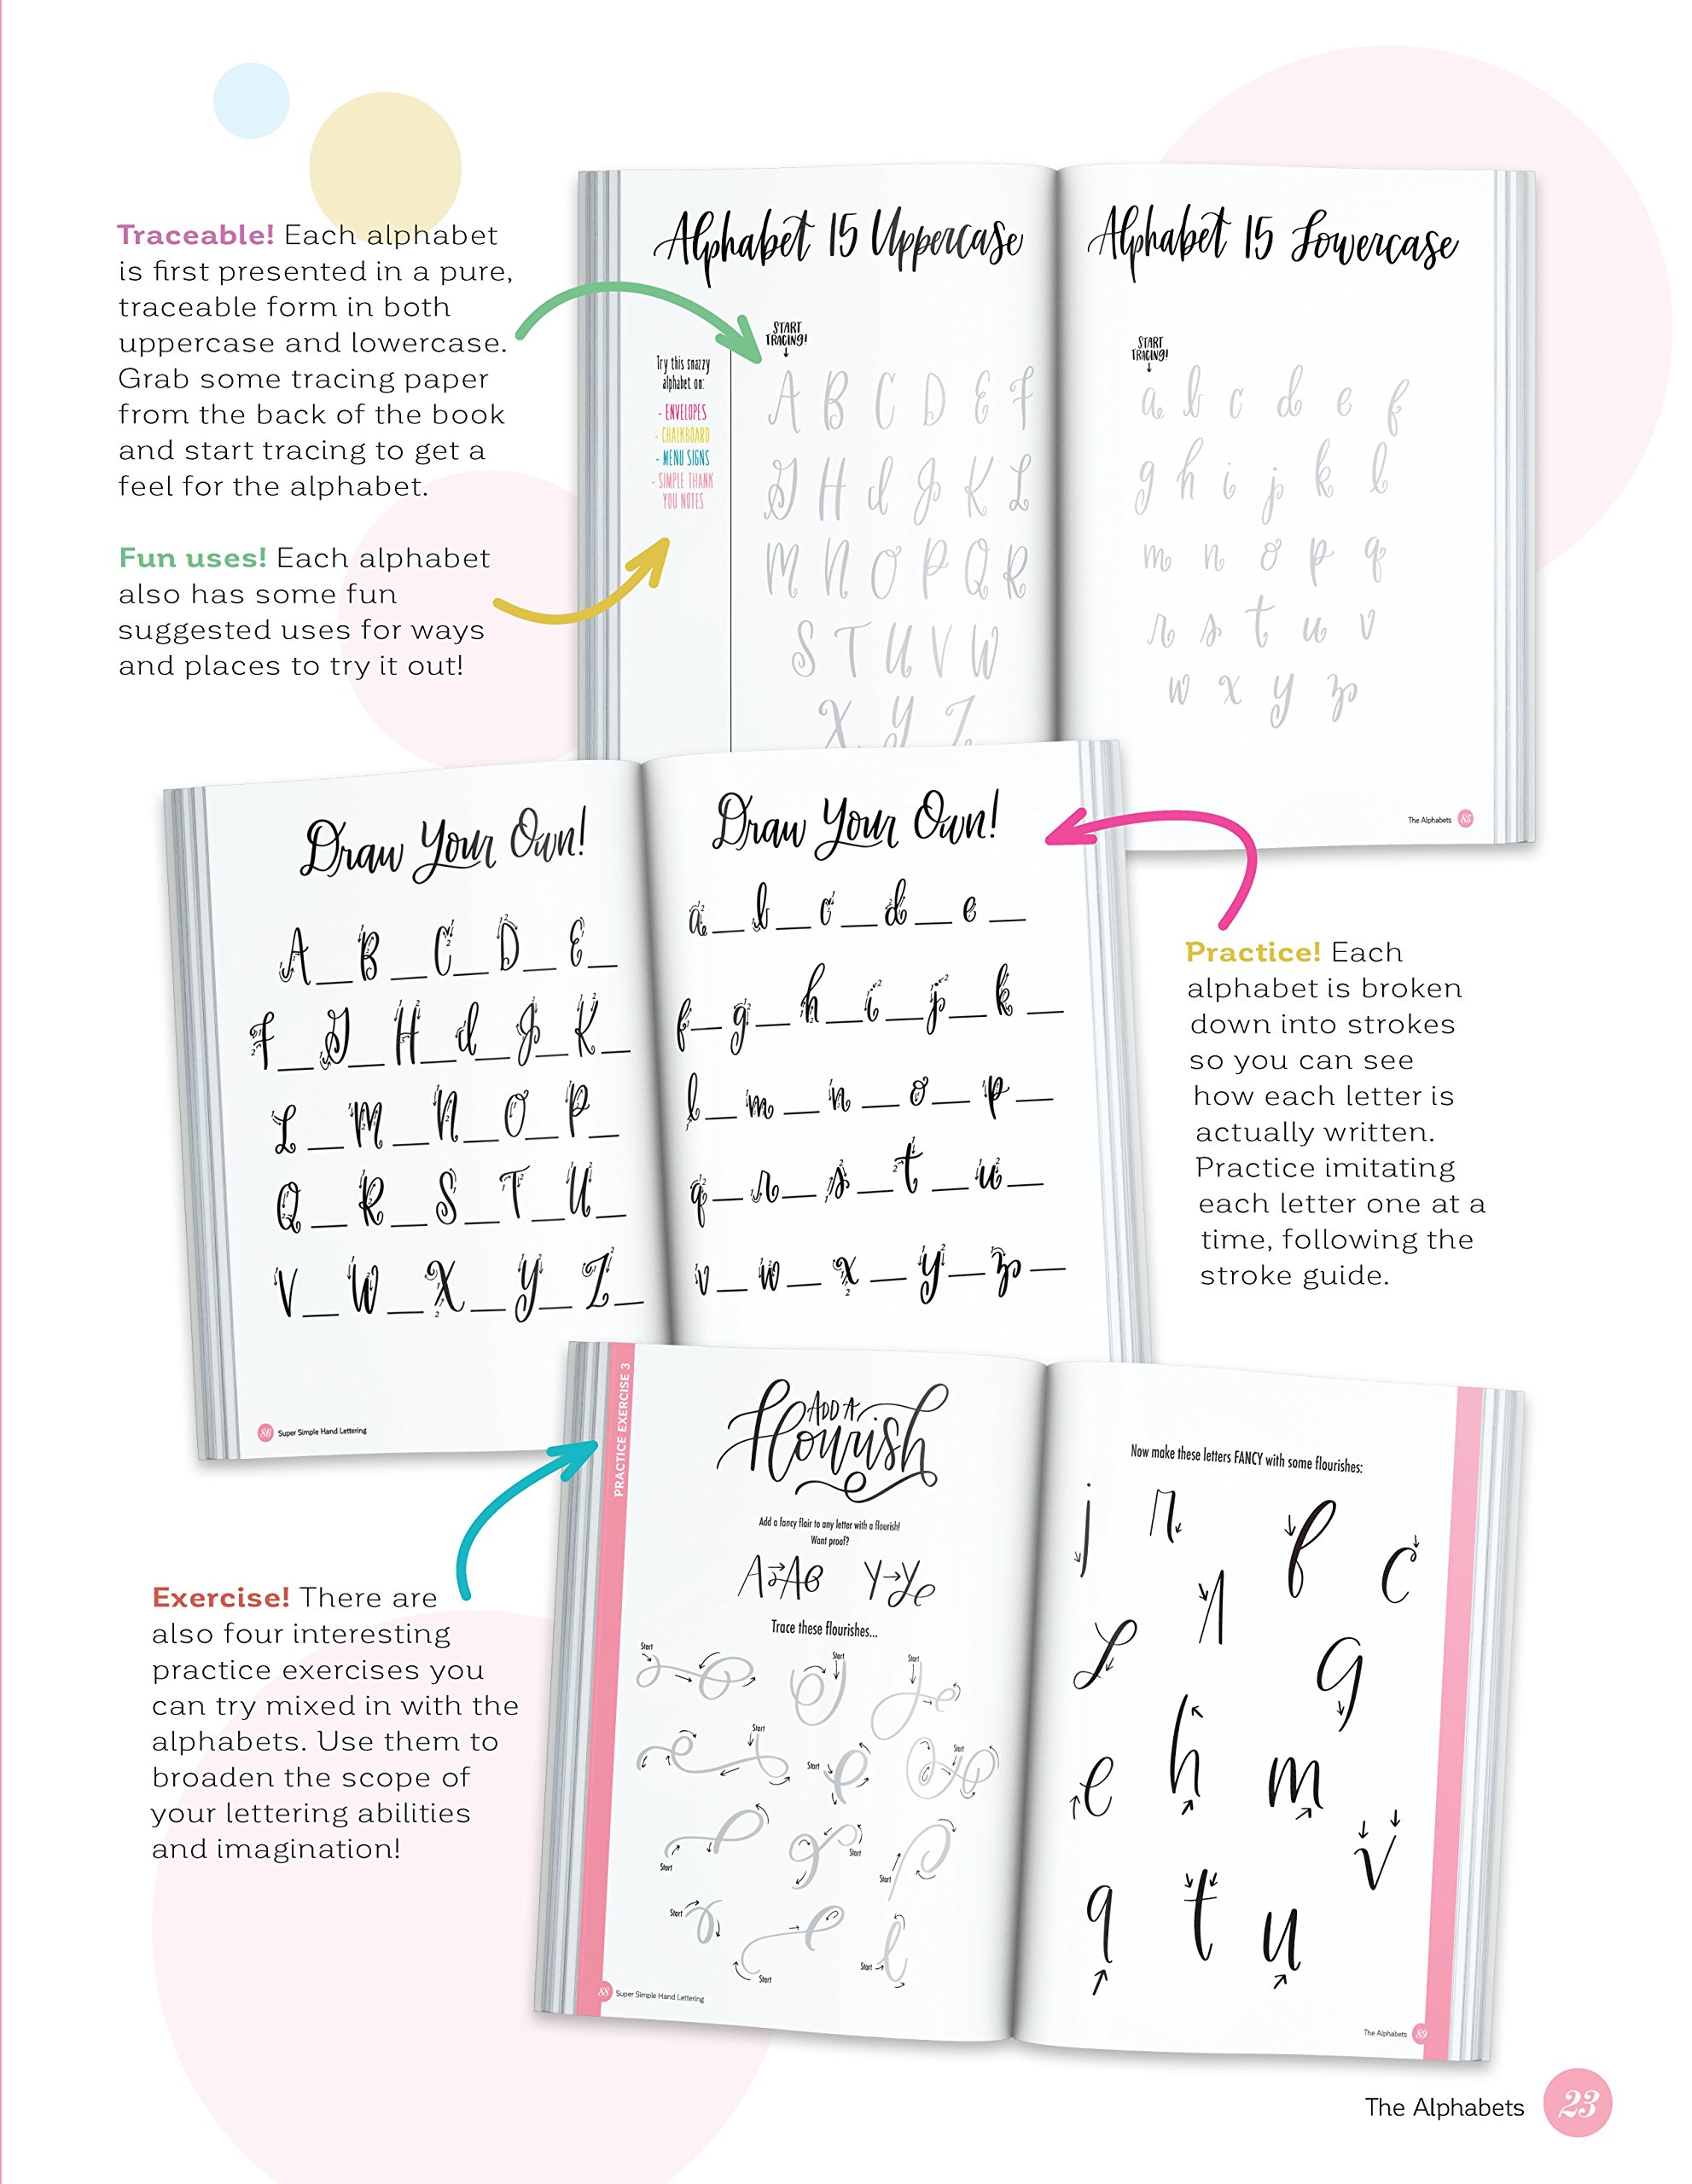 Traceable! Each alphabet
is first presented in a pure,
traceable form in both
uppercase and lowercase.
Grab some tracing paper
from the back of the book
and start tracing to get a
feel for the alphabet.
Fun uses! Each alphabet
also has some fun
suggested uses for ways
and places to try it out!
Alphabet 15 Uppercase
START
TRACING!
Try this snazzy
alphabet on:
- ENVELOPES
- CHALKBOARD
- MENU SIGNS
- SIMPLE THANK
YOU NOTES
A B C D E F
G H I J K L
M N O P Q R
S T U V W
X Y Z
Alphabet 15 Lowercase
START
TRACING!
a b c d e f
g h i j k l
m n o p q
r s t u v
w x y z
The Alphabets 85
Draw Your Own!
A__B__C__D__E__
F__G__H__I__J__K__
L__M__N__O__P__
Q__R__S__T__U__
V__W__X__Y__Z__
86 Super Simple Hand Lettering
Draw Your Own!
a__b__c__d__e__
f__g__h__i__j__k__
l__m__n__o__p__
q__r__s__t__u__
v__w__x__y__z__
Practice! Each
alphabet is broken
down into strokes
so you can see
how each letter is
actually written.
Practice imitating
each letter one at a
time, following the
stroke guide.
Exercise! There are
also four interesting
practice exercises you
can try mixed in with the
alphabets. Use them to
broaden the scope of
your lettering abilities
and imagination!
PRACTICE EXERCISE 3
ADD A
Flourish
Add a fancy flair to any letter with a flourish!
Want proof?
A→A Y→Y
Trace these flourishes...
Start Start Start
Start Start Start
Start Start Start
Start Start Start
88 Super Simple Hand Lettering
Now make these letters FANCY with some flourishes:
j r f c
L A g
e h m
v
q t u
The Alphabets 89
The Alphabets 23